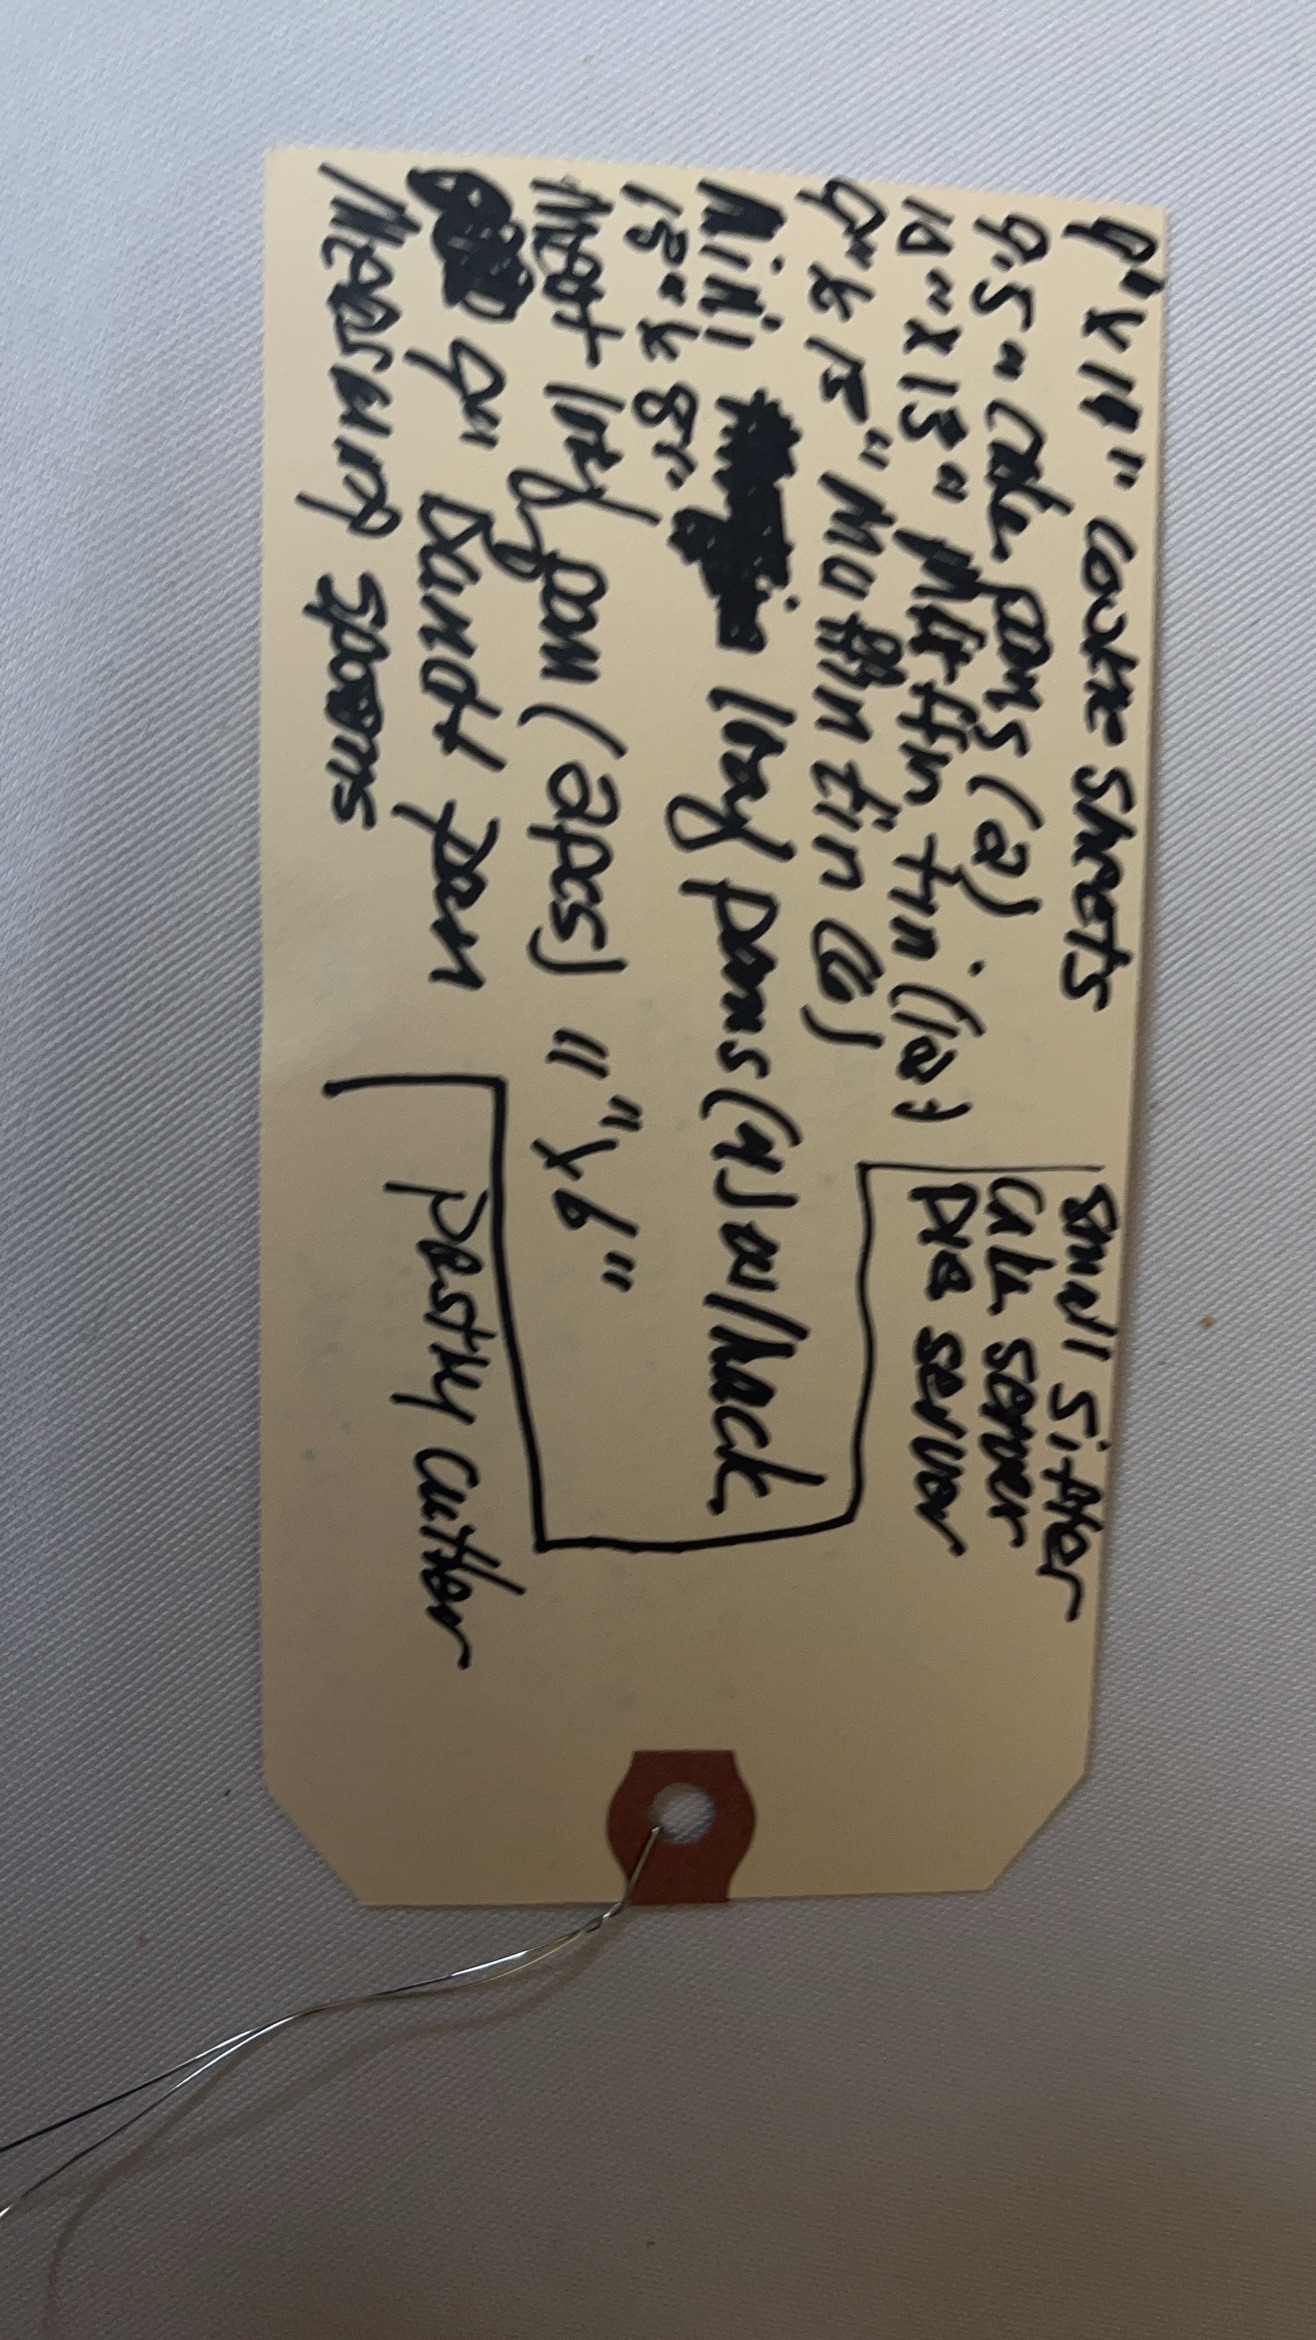 9"x11" cookie sheets
9.5" cake pans (2)
10"x15" Muffin tin (12)
9"x15" Muffin tin (6)
Mini loaf pans (4) w/rack
15"x8"
Meat loaf pan (2pcs) 11"x6"
9" bundt pan
Measuring spoons
small sifter
cake server
pie server
pastry cutter